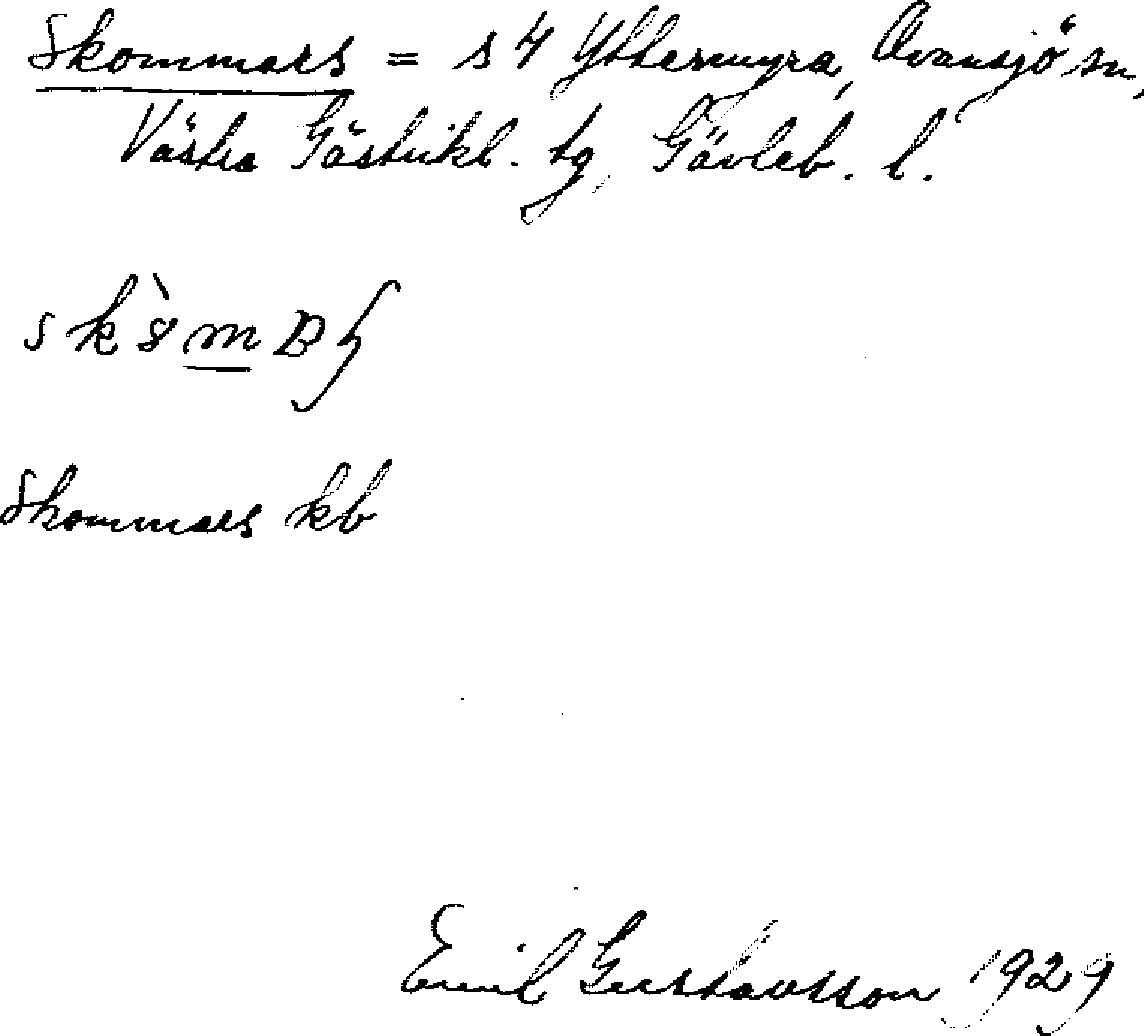 Skommars = s 4 Yttermyra, Ovansjö sn,
Västra Gästrikl. tg, Gävleb. l.
Skommars kb
Emil Gustavsson 1929